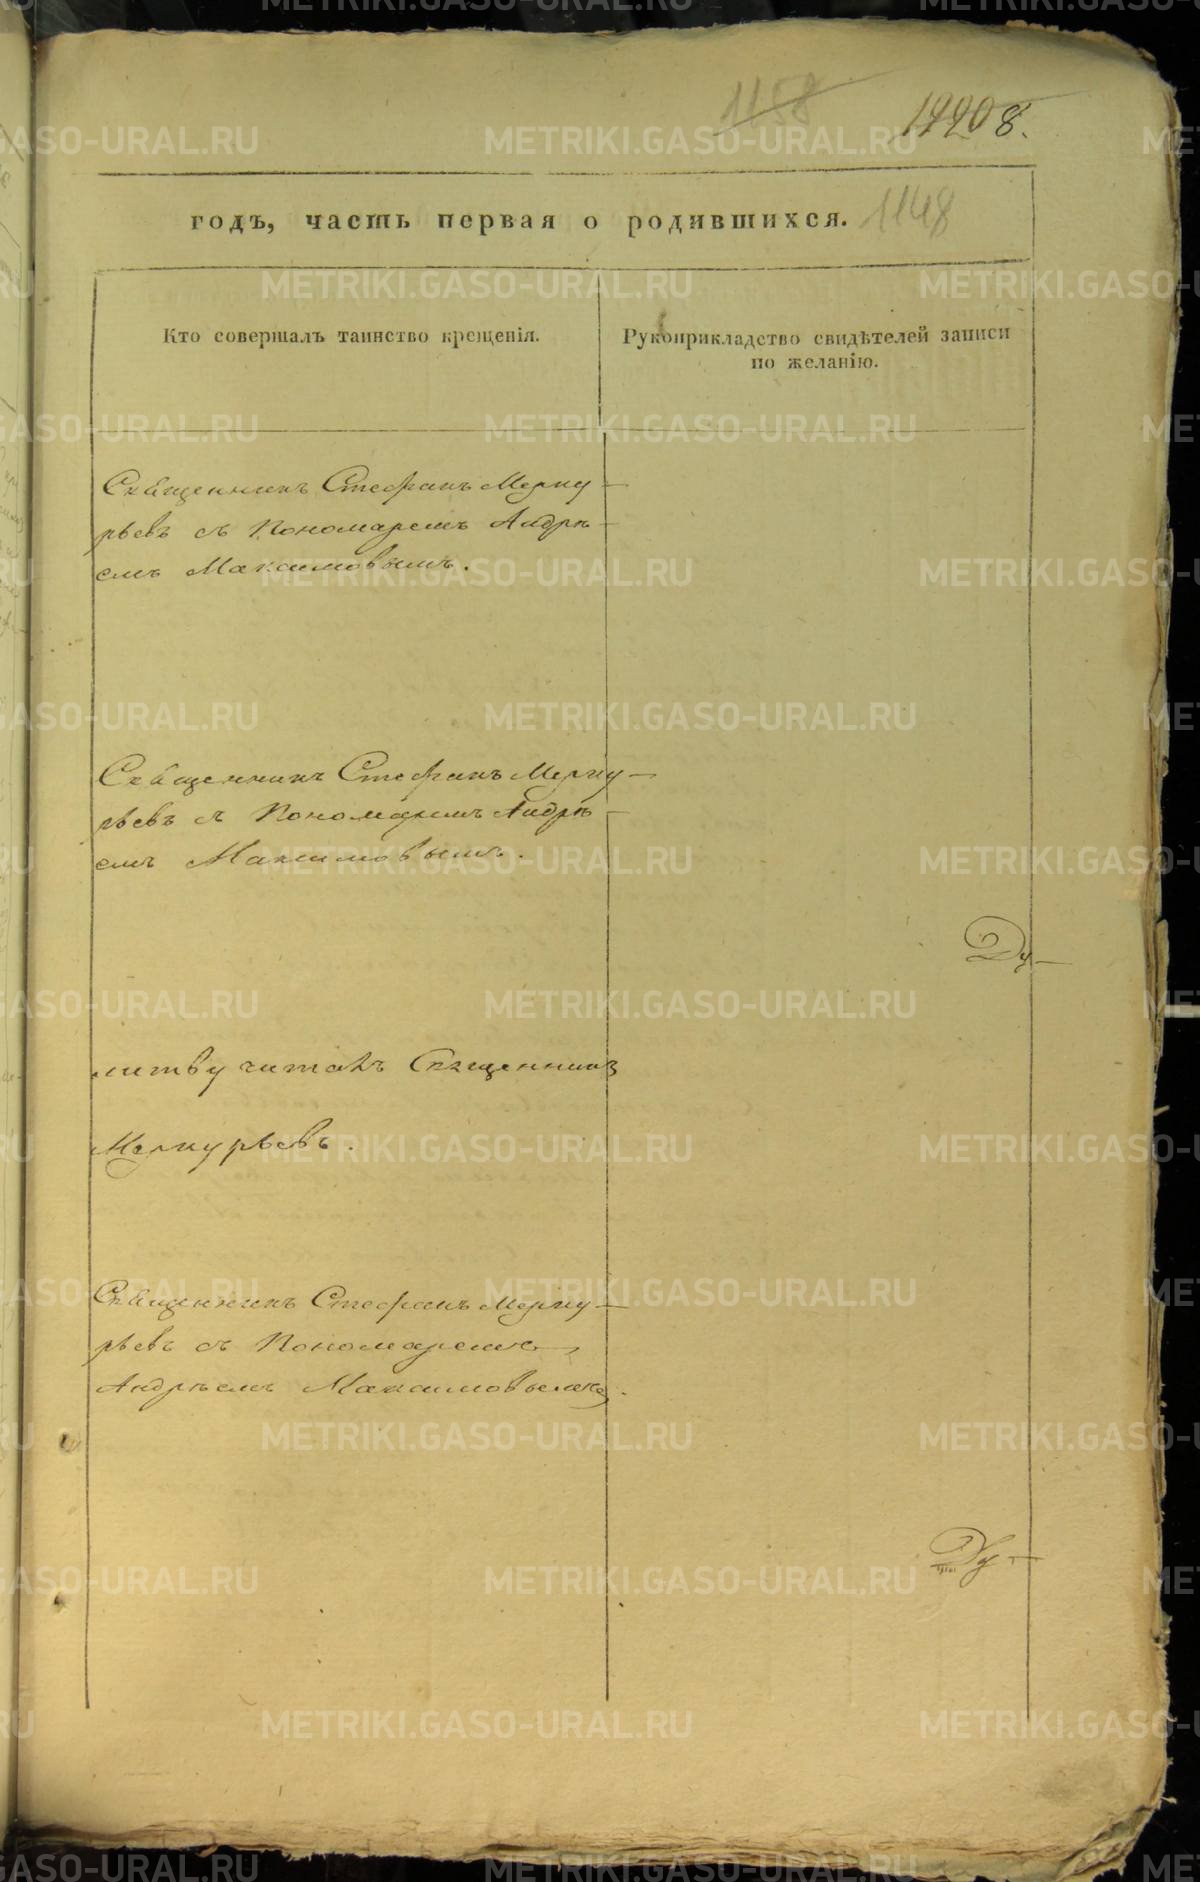 1158
1148
годъ, часть первая о родившихся.
Кто совершалъ таинство крещенія.
Рукоприкладство свидѣтелей записи
по желанію.
Священникъ Стефанъ Мерку-
рьевъ съ Пономаремъ Андрѣ-
емъ Максимовымъ.
Священникъ Стефанъ Мерку-
рьевъ съ Пономаремъ Андрѣ-
емъ Максимовымъ.
Ду-
литву читалъ Священникъ
Меркурьевъ.
Священникъ Стефанъ Мерку-
рьевъ съ Пономаремъ
Андрѣемъ Максимовымъ.
METRIKI.GASO-URAL.RU